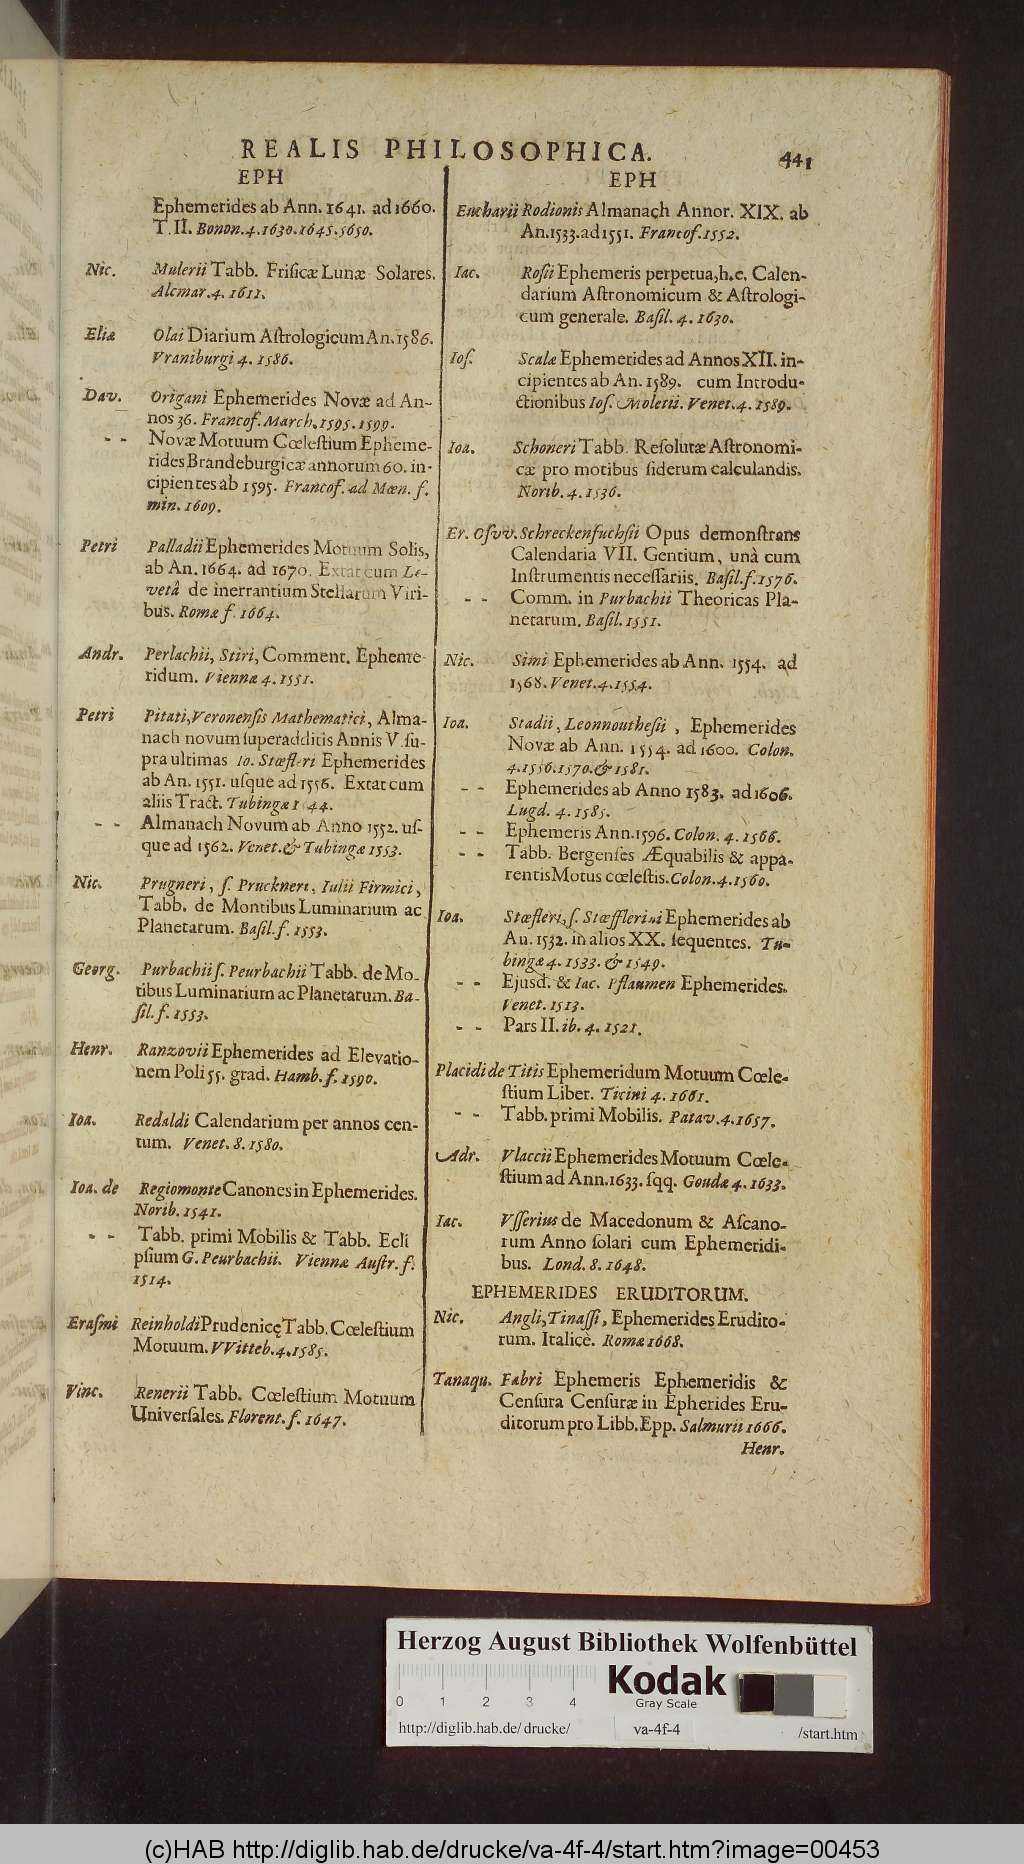 REALIS PHILOSOPHICA.
441
EPH
Ephemerides ab Ann. 1641. ad 1660.
T. II. Bonon. 4. 1630. 1645. 5650.
Nic. Mulerii Tabb. Friſicæ Lunæ Solares.
Alcmar. 4. 1611.
Eliæ Olai Diarium Aſtrologicum An. 1586.
Vraniburgi 4. 1586.
Dav. Origani Ephemerides Novæ ad An-
nos 36. Francof. March. 1595. 1599.
- - Novæ Motuum Cœleſtium Epheme-
rides Brandeburgicæ annorum 60. in-
cipientes ab 1595. Francof. ad Mœn. f.
min. 1609.
Petri Palladii Ephemerides Motuum Solis,
ab An. 1664. ad 1670. Extat cum Le-
vetâ de inerrantium Stellarum Viri-
bus. Romæ f. 1664.
Andr. Perlachii, Stiri, Comment. Epheme-
ridum. Viennæ 4. 1551.
Petri Pitati, Veronenſis Mathematici, Alma-
nach novum ſuperadditis Annis V. ſu-
pra ultimas Io. Stœfleri Ephemerides
ab An. 1551. uſque ad 1556. Extat cum
aliis Tract. Tubingæ 1 44.
- - Almanach Novum ab Anno 1552. uſ-
que ad 1562. Venet. & Tubingæ 1553.
Nic. Prugneri, ſ. Pruckneri, Iulii Firmici,
Tabb. de Montibus Luminarium ac
Planetarum. Baſil. f. 1553.
Georg. Purbachii ſ. Peurbachii Tabb. de Mo-
tibus Luminarium ac Planetarum. Ba-
ſil. f. 1553.
Henr. Ranzovii Ephemerides ad Elevatio-
nem Poli 55. grad. Hamb. f. 1590.
Ioa. Redaldi Calendarium per annos cen-
tum. Venet. 8. 1580.
Ioa. de Regiomonte Canones in Ephemerides.
Norib. 1541.
- - Tabb. primi Mobilis & Tabb. Ecli
pſium G. Peurbachii. Viennæ Auſtr. f.
1514.
Eraſmi Reinholdi Prudenicę Tabb. Cœleſtium
Motuum. VVitteb. 4. 1585.
Vinc. Renerii Tabb. Cœleſtium Motuum
Univerſales. Florent. f. 1647.
EPH
Eucharii Rodionis Almanach Annor. XIX. ab
An. 1533. ad 1551. Francof. 1552.
Iac. Roſii Ephemeris perpetua, h.e. Calen-
darium Aſtronomicum & Aſtrologi-
cum generale. Baſil. 4. 1630.
Ioſ. Scalæ Ephemerides ad Annos XII. in-
cipientes ab An. 1589. cum Introdu-
ctionibus Ioſ. Moletii. Venet. 4. 1589.
Ioa. Schoneri Tabb. Reſolutæ Aſtronomi-
cæ pro motibus ſiderum calculandis.
Norib. 4. 1536.
Er. Oſvv. Schreckenfuchſii Opus demonſtrans
Calendaria VII. Gentium, unà cum
Inſtrumentis neceſſariis. Baſil. f. 1576.
- - Comm. in Purbachii Theoricas Pla-
netarum. Baſil. 1551.
Nic. Simi Ephemerides ab Ann. 1554. ad
1568. Venet. 4. 1554.
Ioa. Stadii, Leonnoutheſii, Ephemerides
Novæ ab Ann. 1554. ad 1600. Colon.
4. 1556. 1570. & 1581.
- - Ephemerides ab Anno 1583. ad 1606.
Lugd. 4. 1585.
- - Ephemeris Ann. 1596. Colon. 4. 1566.
- - Tabb. Bergenſes Æquabilis & appa-
rentis Motus cœleſtis. Colon. 4. 1560.
Ioa. Stœfleri, ſ. Stœfflerini Ephemerides ab
An. 1532. in alios XX. ſequentes. Tu-
bingæ 4. 1533. & 1549.
- - Ejusd. & Iac. Pflaumen Ephemerides.
Venet. 1513.
- - Pars II. ib. 4. 1521.
Placidi de Titis Ephemeridum Motuum Cœle-
ſtium Liber. Ticini 4. 1661.
- - Tabb. primi Mobilis. Patav. 4. 1657.
Adr. Vlaccii Ephemerides Motuum Cœle-
ſtium ad Ann. 1633. ſqq. Goudæ 4. 1633.
Iac. Vſſerius de Macedonum & Aſcano-
rum Anno ſolari cum Ephemeridi-
bus. Lond. 8. 1648.
EPHEMERIDES ERUDITORUM.
Nic. Angli, Tinaſſi, Ephemerides Erudito-
rum. Italicè. Romæ 1668.
Tanaqu. Fabri Ephemeris Ephemeridis &
Cenſura Cenſuræ in Epherides Eru-
ditorum pro Libb. Epp. Salmurii 1666.
Henr.
Herzog August Bibliothek Wolfenbüttel
Kodak
Gray Scale
0 1 2 3 4
http://diglib.hab.de/drucke/ va-4f-4 /start.htm
(c)HAB http://diglib.hab.de/drucke/va-4f-4/start.htm?image=00453